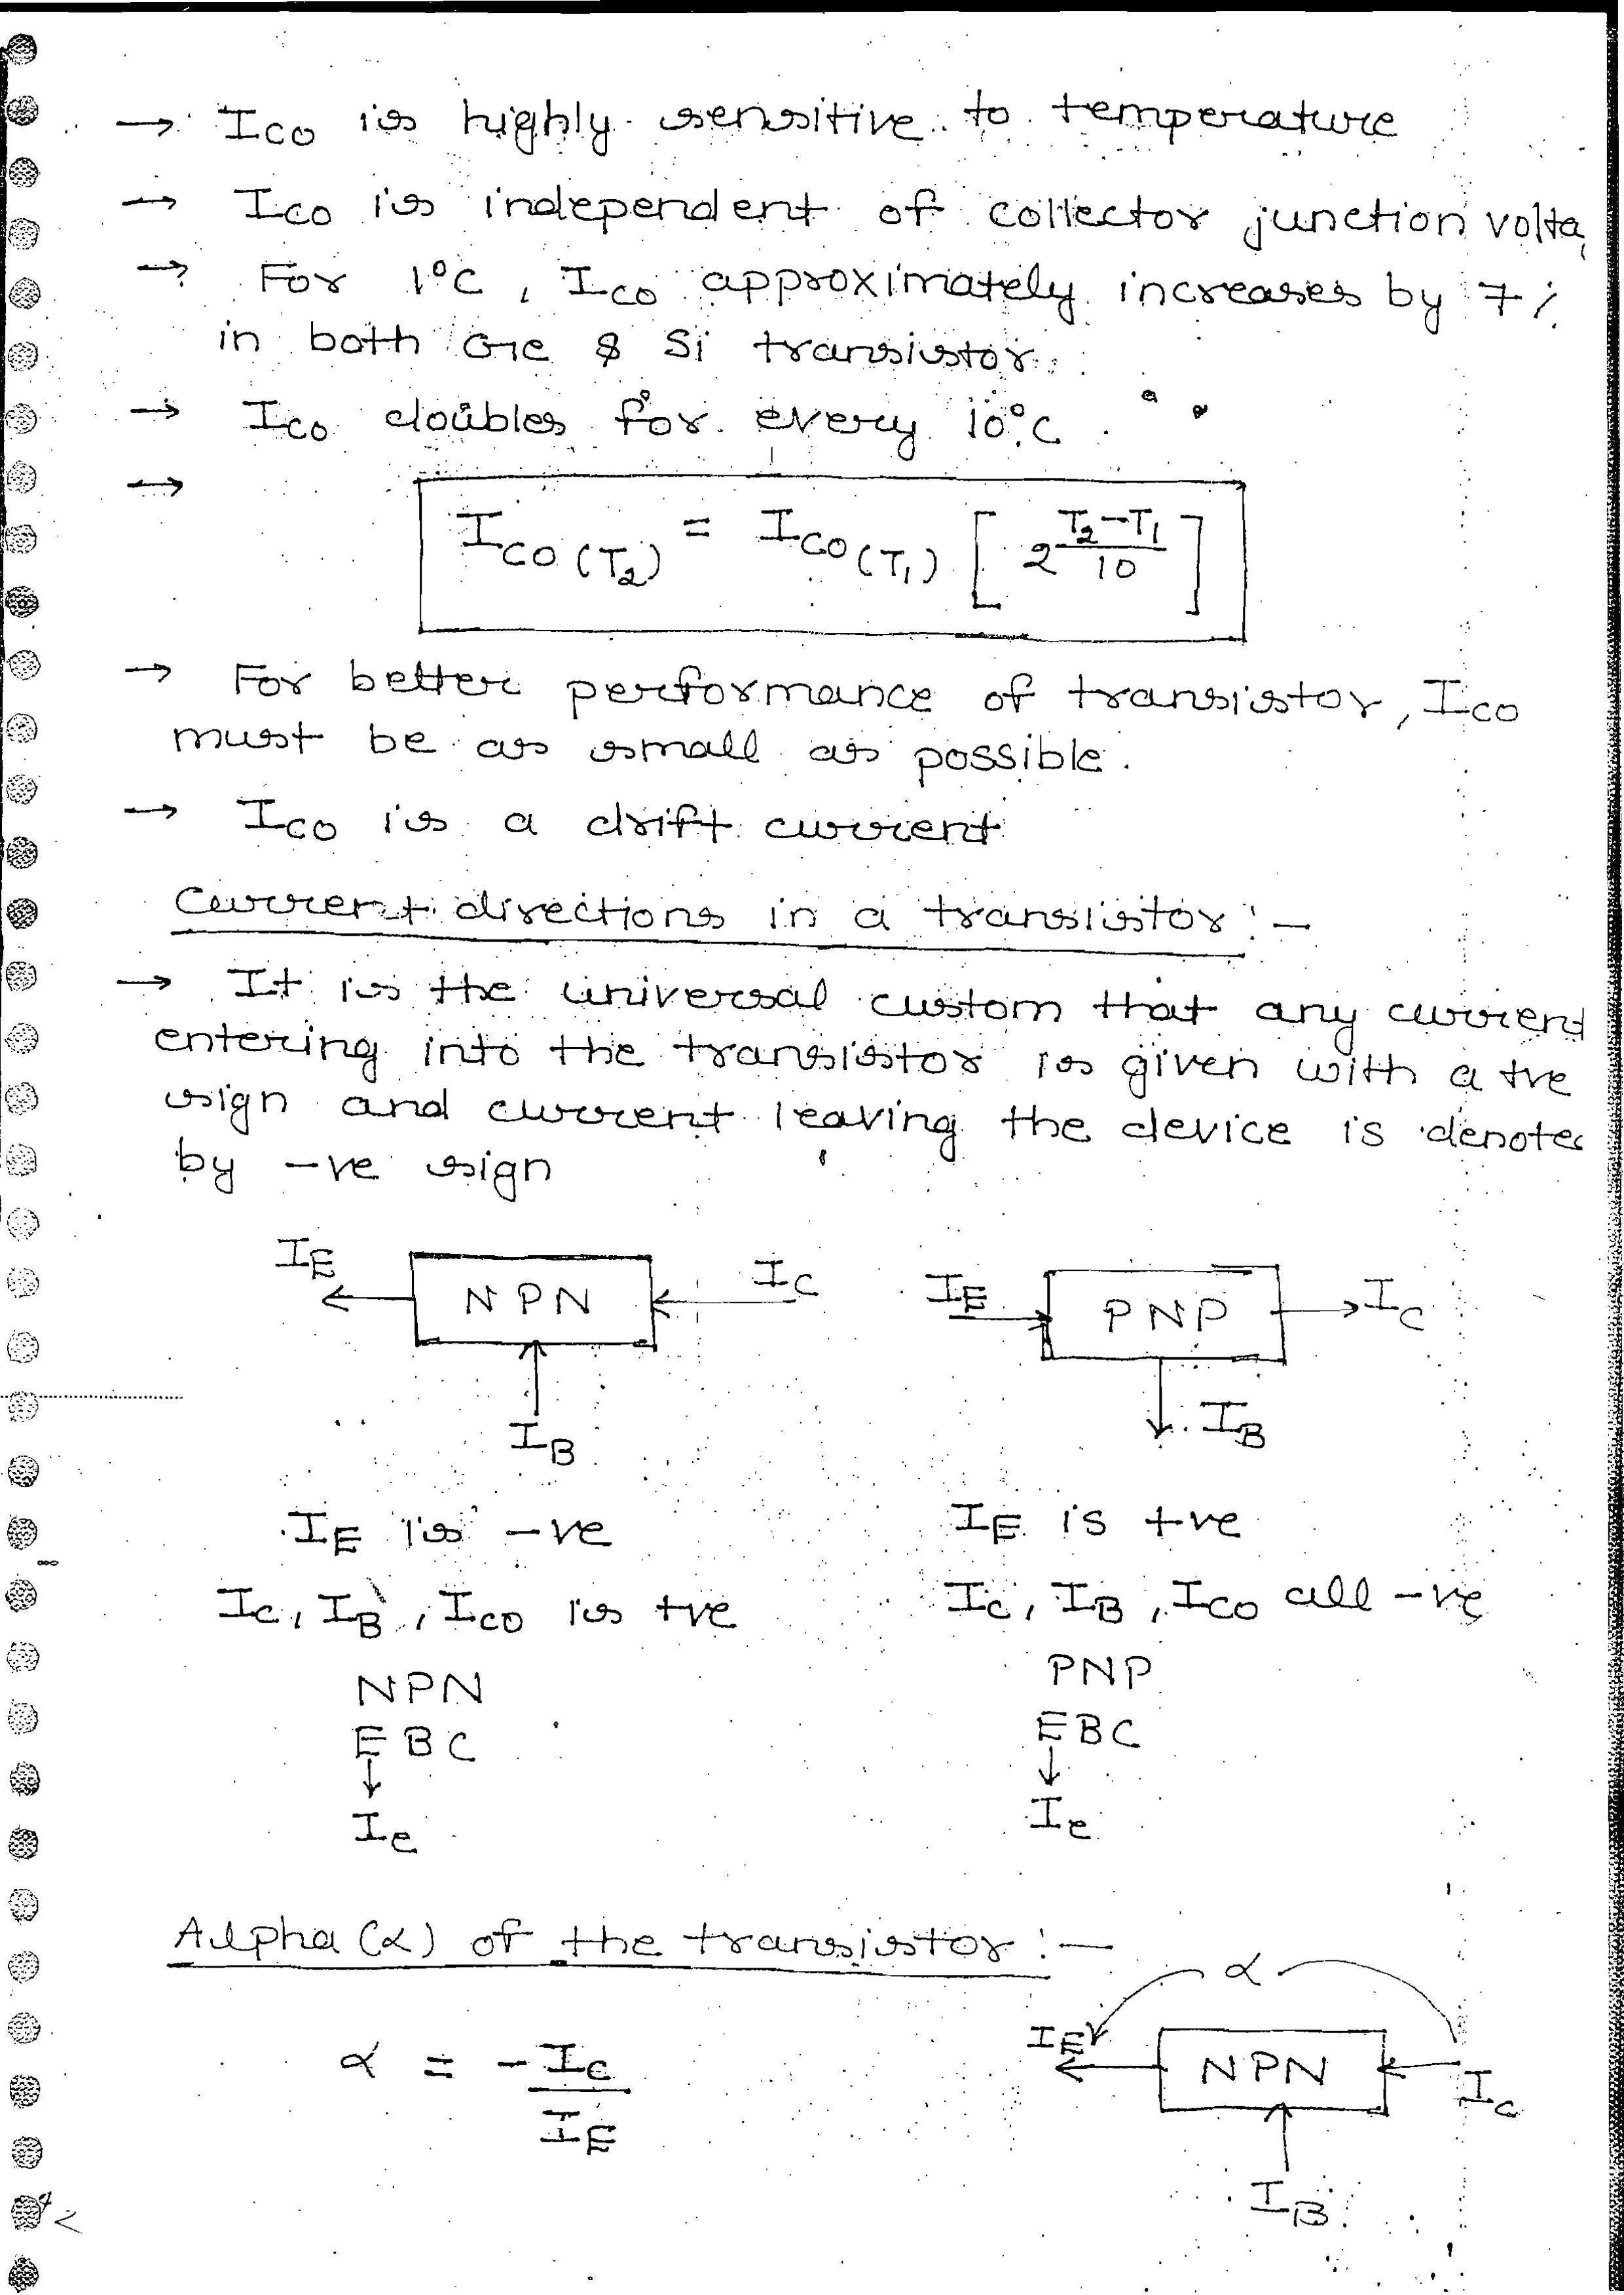 → I_CO is highly sensitive to temperature
→ I_CO is independent of collector junction volta
→ For 1°C, I_CO approximately increases by 7%
in both Ge & Si transistor
→ I_CO doubles for every 10°C.
→ I_CO(T₂) = I_CO(T₁) [2^((T₂-T₁)/10)]
→ For better performance of transistor, I_CO
must be as small as possible.
→ I_CO is a drift current
Current directions in a transistor :-
→ It is the universal custom that any current
entering into the transistor is given with a +ve
sign and current leaving the device is denote
by -ve sign
I_E NPN I_C I_E PNP I_C
I_B I_B
I_E is -ve I_E is +ve
I_C, I_B, I_CO is +ve I_C, I_B, I_CO all -ve
NPN PNP
EBC EBC
↓ ↓
I_e I_e
Alpha (α) of the transistor :-
α
α = -I_C/I_E I_E NPN I_C
I_B